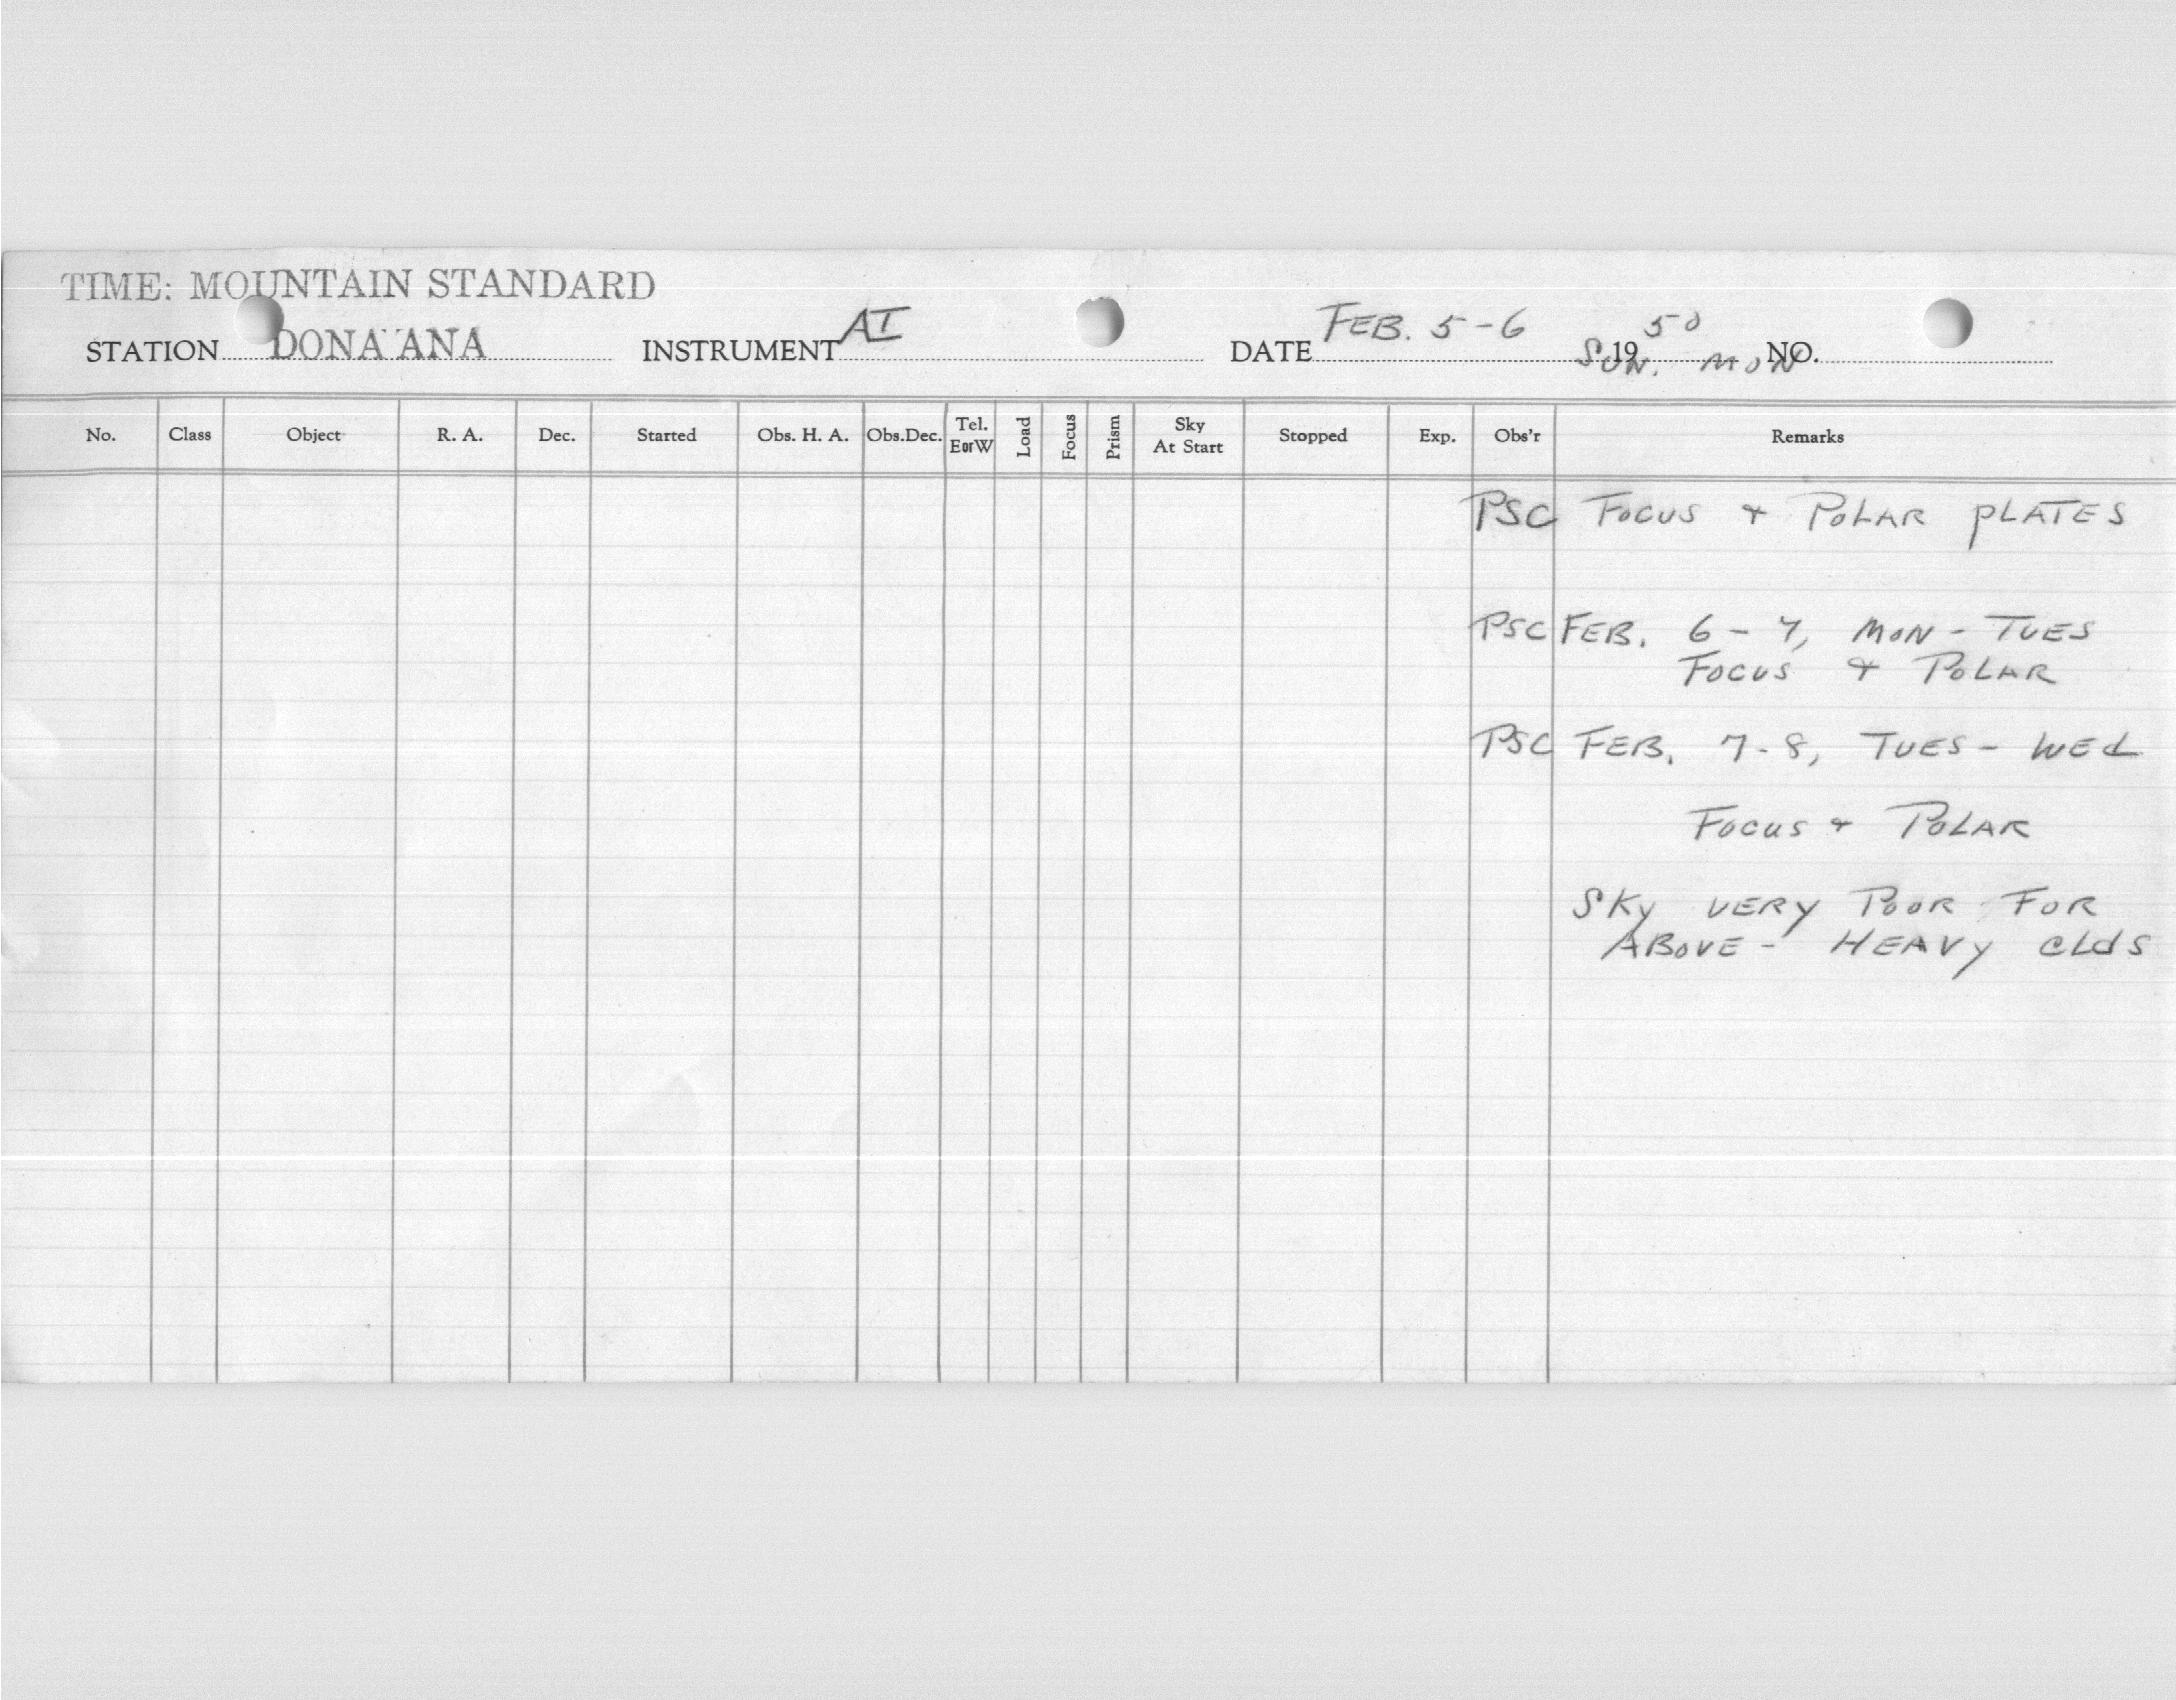 TIME: MOUNTAIN STANDARD
STATION DONA ANA INSTRUMENT AI DATE FEB. 5-6 1950 NO.
SUN. MON
No. Class Object R. A. Dec. Started Obs. H. A. Obs.Dec. Tel. EorW Load Focus Prism Sky At Start Stopped Exp. Obs'r Remarks
PSC FOCUS + POLAR PLATES
PSC FEB. 6-7, MON-TUES
FOCUS + POLAR
PSC FEB. 7-8, TUES-WEd
FOCUS + POLAR
SKY VERY POOR FOR
ABOVE- HEAVY CLdS